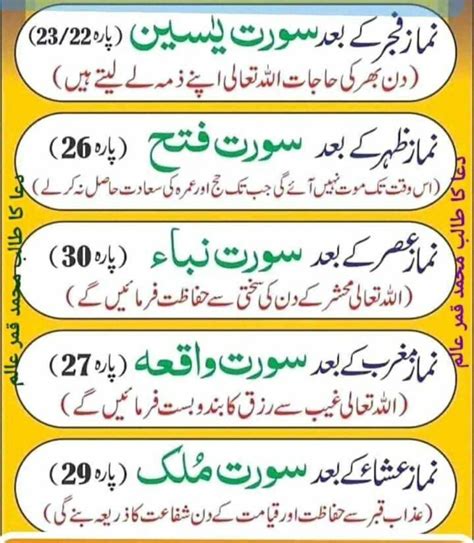 نماز فجر کے بعد سورت یسین (پارہ 23/22)
(دن بھر کی حاجات اللہ تعالی اپنے ذمہ لے لیتے ہیں)
نماز ظہر کے بعد سورت فتح (پارہ 26)
(اس وقت تک موت نہیں آئے گی جب تک حج اور عمرہ کی سعادت حاصل نہ کرلے)
نماز عصر کے بعد سورت نباء (پارہ 30)
(اللہ تعالی محشر کے دن کی سختی سے حفاظت فرمائیں گے)
نماز مغرب کے بعد سورت واقعہ (پارہ 27)
(اللہ تعالی غیب سے رزق کا بندوبست فرمائیں گے)
نماز عشاء کے بعد سورت مُلک (پارہ 29)
(عذاب قبر سے حفاظت اور قیامت کے دن شفاعت کا ذریعہ بنے گی)
دعا کا طالب محمد قمر عالم
دعا کا طالب محمد قمر عالم